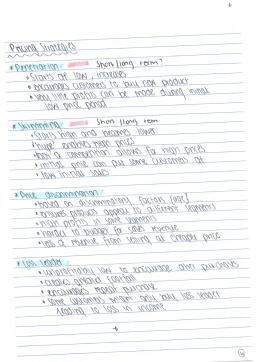 Pricing Strategies
* Penetration short/long term?
• starts off low, increases
• encourages customers to buy new product
• very little profits can be made during initial
low price period
* Skimming short/long term
• starts high and becomes lower
• 'hype' enables high prices
• lack of competition allows for high prices
• initial price can put some customers off
• low initial sales
* Price discrimination
• based on discriminatory factors (age)
• ensures product appeals to different segments
• high profits in some segments
• harder to budget for sales revenue
• loss of revenue from selling at cheaper price
* Loss leader
• unprofitably low to encourage other purchases
• creates greater footfall
• encourages repeat purchase
• some customers might only buy loss leader
leading to loss in income